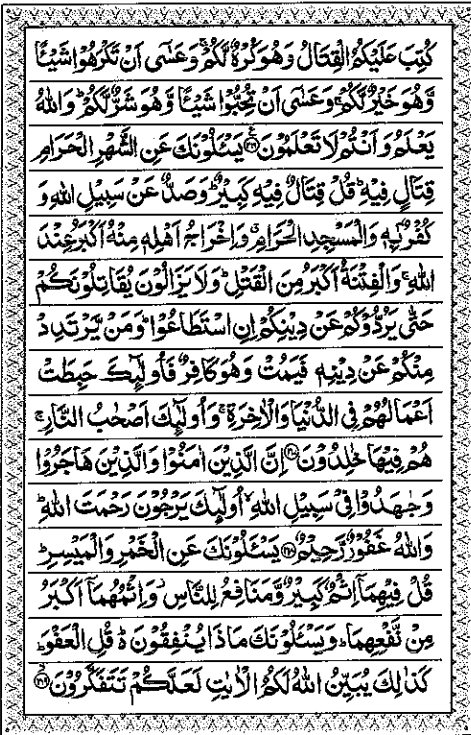 كُتِبَ عَلَيْكُمُ الْقِتَالُ وَهُوَ كُرْهٌ لَّكُمْ ۚ وَعَسٰۤى اَنْ تَكْرَهُوْا شَيْـًٔا
وَّهُوَ خَيْرٌ لَّكُمْ ۚ وَعَسٰۤى اَنْ تُحِبُّوْا شَيْـًٔا وَّهُوَ شَرٌّ لَّكُمْ ؕ وَاللّٰهُ
يَعْلَمُ وَاَنْتُمْ لَا تَعْلَمُوْنَ ﴿۲۱۶﴾ يَسْـَٔلُوْنَكَ عَنِ الشَّهْرِ الْحَرَامِ
قِتَالٍ فِيْهِ ؕ قُلْ قِتَالٌ فِيْهِ كَبِيْرٌ ؕ وَصَدٌّ عَنْ سَبِيْلِ اللّٰهِ وَ
كُفْرٌۢ بِهٖ وَالْمَسْجِدِ الْحَرَامِ ۗ وَاِخْرَاجُ اَهْلِهٖ مِنْهُ اَكْبَرُ عِنْدَ
اللّٰهِ ۚ وَالْفِتْنَةُ اَكْبَرُ مِنَ الْقَتْلِ ؕ وَلَا يَزَالُوْنَ يُقَاتِلُوْنَكُمْ
حَتّٰى يَرُدُّوْكُمْ عَنْ دِيْنِكُمْ اِنِ اسْتَطَاعُوْا ؕ وَمَنْ يَّرْتَدِدْ
مِنْكُمْ عَنْ دِيْنِهٖ فَيَمُتْ وَهُوَ كَافِرٌ فَاُولٰٓئِكَ حَبِطَتْ
اَعْمَالُهُمْ فِى الدُّنْيَا وَالْاٰخِرَةِ ۚ وَاُولٰٓئِكَ اَصْحٰبُ النَّارِ ۚ
هُمْ فِيْهَا خٰلِدُوْنَ ﴿۲۱۷﴾ اِنَّ الَّذِيْنَ اٰمَنُوْا وَالَّذِيْنَ هَاجَرُوْا
وَجٰهَدُوْا فِيْ سَبِيْلِ اللّٰهِ ۙ اُولٰٓئِكَ يَرْجُوْنَ رَحْمَتَ اللّٰهِ ؕ
وَاللّٰهُ غَفُوْرٌ رَّحِيْمٌ ﴿۲۱۸﴾ يَسْـَٔلُوْنَكَ عَنِ الْخَمْرِ وَالْمَيْسِرِ ؕ
قُلْ فِيْهِمَاۤ اِثْمٌ كَبِيْرٌ وَّمَنَافِعُ لِلنَّاسِ ۡ وَاِثْمُهُمَاۤ اَكْبَرُ
مِنْ نَّفْعِهِمَا ؕ وَيَسْـَٔلُوْنَكَ مَاذَا يُنْفِقُوْنَ ۬ؕ قُلِ الْعَفْوَ ؕ
كَذٰلِكَ يُبَيِّنُ اللّٰهُ لَكُمُ الْاٰيٰتِ لَعَلَّكُمْ تَتَفَكَّرُوْنَ ﴿۲۱۹﴾